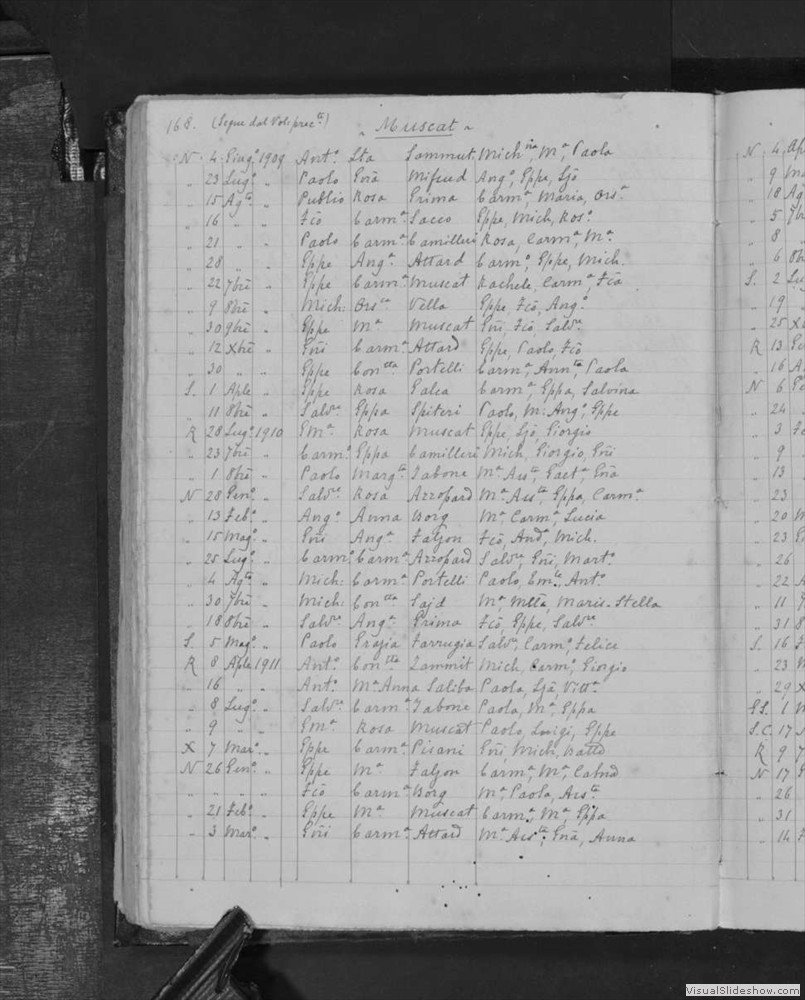 168. (Segue dal Vol: prec.te)
Muscat
N 4 Giug.o 1909 Ant.o Sta Sammut Mich.ina, M.a, Paola
" 23 Lug.o " Paolo Gñã Mifsud Ang.o, Eppe, Sjã
" 15 Ag.to " Publio Rosa Grima Carm.a, Maria, Ors.a
" 16 " " Fcõ Carm.a Sacco Eppe, Mich, Ros.o
" 21 " " Paolo Carm.a Camilleri Rosa, Carm.a, M.a
" 28 " " Eppe Ang.a Attard Carm.o, Eppe, Mich.
" 22 7brẽ " Eppe Carm.a Muscat Rachele, Carm.a, Fcã
" 9 8brẽ " Mich: Ors.a Vella Eppe, Fcõ, Ang.o
" 30 9brẽ " Eppe M.a Muscat Gñi, Fcõ, Salv.e
" 12 Xbrẽ " Gñi Carm.a Attard Eppe, Paolo, Fcõ
" 30 " " Eppe Con.tta Portelli Carm.a, Ann.ta, Paola
S. 1 Aple " Eppe Rosa Galea Carm.a, Eppa, Salvina
" 11 8brẽ " Salv.e Eppa Spiteri Paolo, M: Ang.o, Eppe
R 28 Lug.o 1910 Em.a Rosa Muscat Eppe, Sjõ, Giorgio
" 23 7brẽ " Carm.o Eppa Camilleri Mich, Giorgio, Gñi
" 1 8brẽ " Paolo Marg.ta Zabone M.a Ass.ta, Gaet.a, Gñã
N 28 Gen.o " Salv.e Rosa Azzopard M.a Ass.ta, Eppa, Carm.a
" 13 Feb.o " Ang.o Anna Borg M.a Carm.a, Lucia
" 15 Mag.o " Gñi Ang.a Falzon Fcõ, And.a, Mich.
" 25 Lug.o " Carm.o Carm.a Azzopard Salv.e, Gñi, Mart.o
" 4 Ag.to " Mich: Carm.a Portelli Paolo, Em.le, Ant.o
" 30 7brẽ " Mich: Con.tta Sajd M.a, Mtta, Maris-Stella
" 18 8brẽ " Salv.e Ang.a Grima Fcõ, Eppe, Salv.e
S. 5 Mag.o " Paolo Grazia Farrugia Salv.e, Carm.o, Felice
R 8 Aple 1911 Ant.o Con.tta Zammit Mich, Carm.o, Giorgio
" 16 " " Ant.o M.a Anna Saliba Paola, Sjã, Vitt.a
" 8 Lug.o " Salv.e Carm.a Zabone Paola, M.a, Eppa
" 9 " " Em.a Rosa Muscat Paolo, Luigi, Eppe
X 7 Mar.o " Eppe Carm.a Pisani Gñi, Mich, Batt
N 26 Gen.o " Eppe M.a Falzon Carm.a, M.a, Catnã
" " " " Fcõ Carm.a Borg M.a, Paola, Ass.ta
" 21 Feb.o " Eppe M.a Muscat Carm.a, M.a, Eppa
" 3 Mar.o " Gñi Carm.a Attard M.a Ass.ta, Gñã, Anna
N 4
" 9
" 18
" 5
" 8
" 6
S. 2
" 19
" 25
R 13
" 16
N 6
" 24
" 3
" 9
" 13
" 23
" 20
" 23
" 26
" 22
" 11
" 31
S. 16
" 23
" 29
S.S. 1
S.C. 17
R 9
N 17
" 26
" 31
" 14
VisualSlideshow.com